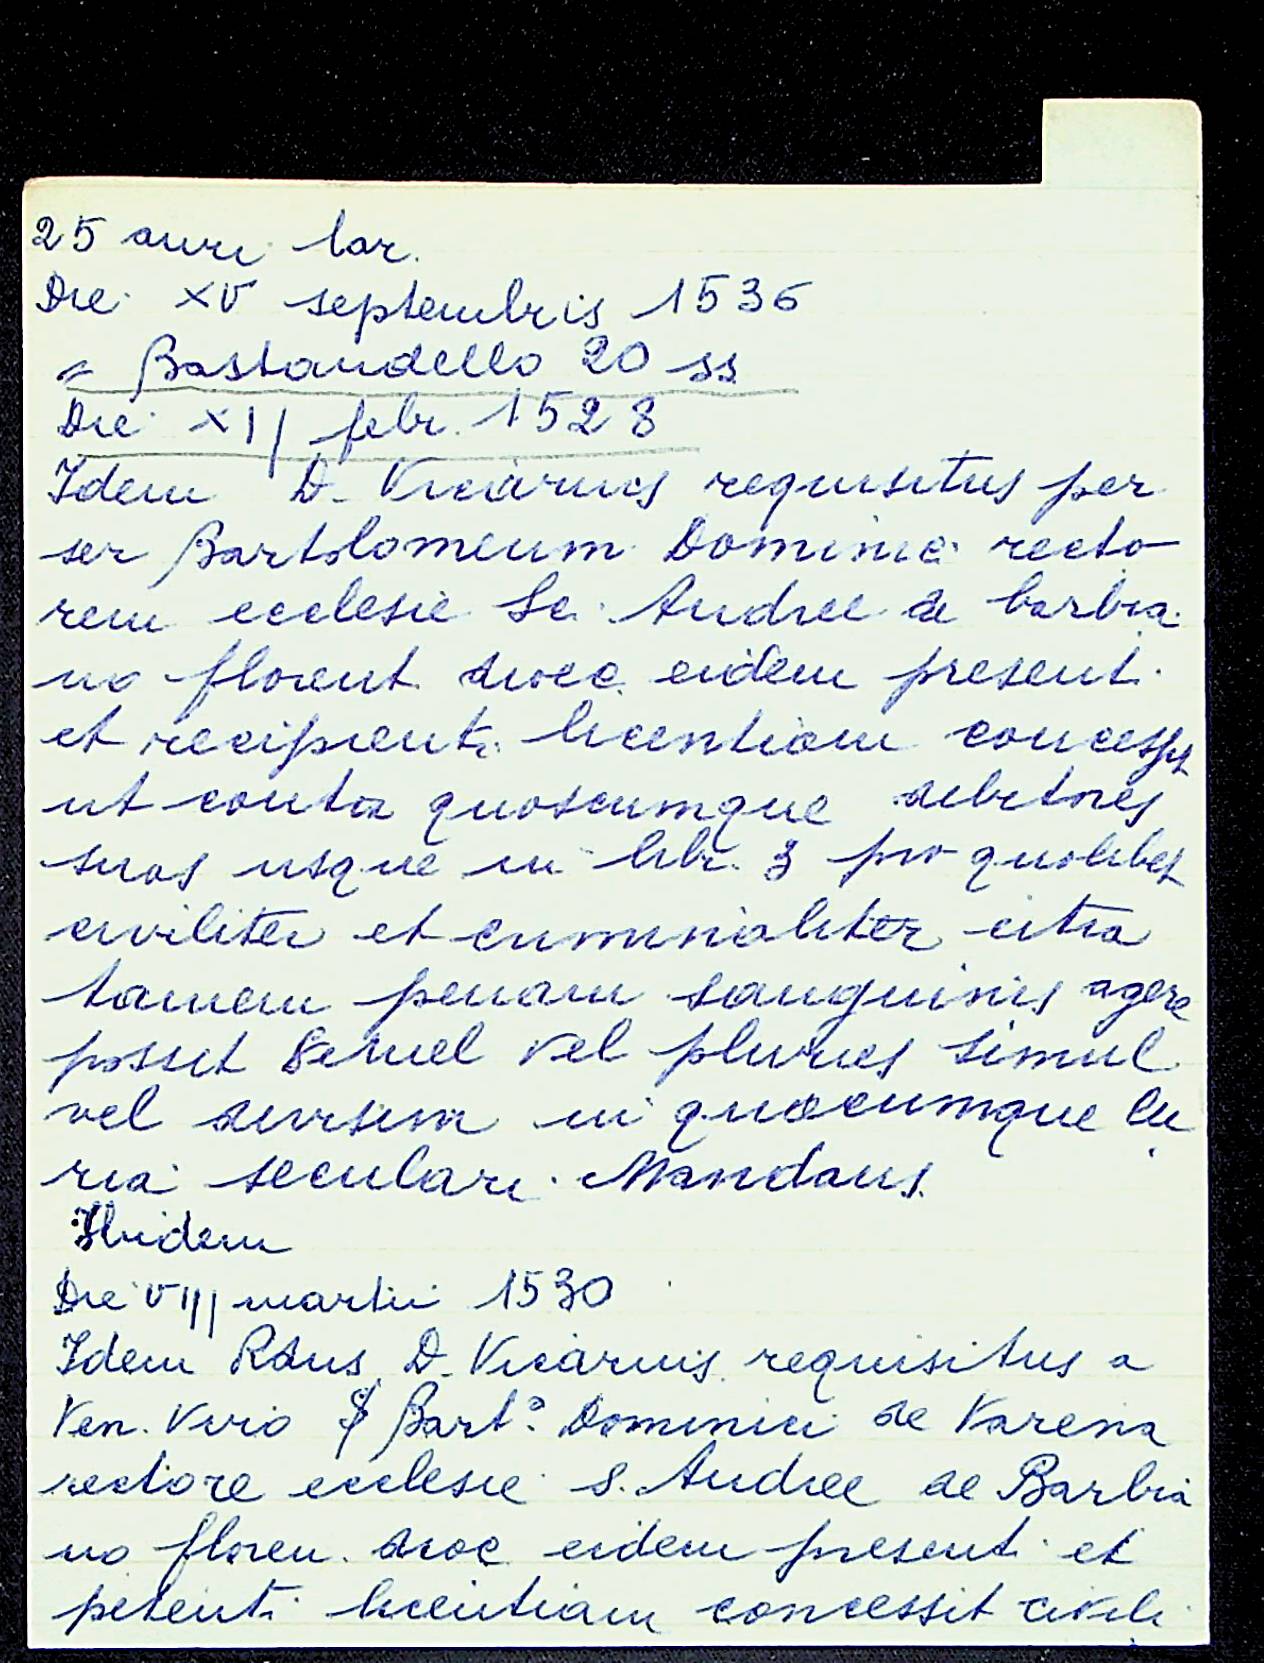 25 auri lar.
Die XV septembris 1536
= Bastardello 20 ss
Die XIJ febr. 1528
Idem D. Vicarius requisitus per
ser Bartolomeum Dominici recto
rem ecclesie Sci Andree de barbia
no florent. dioec. eidem presenti
et recipienti licentiam concessit
ut contra quoscumque debitores
suos usque in libr. 3 pro quolibet
civiliter et criminaliter citra
tamen penam sanguinis agere
posset semel vel plures simul
vel divisim in quacumque cu
ria seculari. Mandans.
Ibidem
Die VIIJ martii 1530
Idem Rdus D. Vicarius requisitus a
Ven. Viro Bart.o Dominici de Varena
rectore ecclesie S. Andree de Barbia
no floren. dioc eidem presenti et
petenti licentiam concessit civili